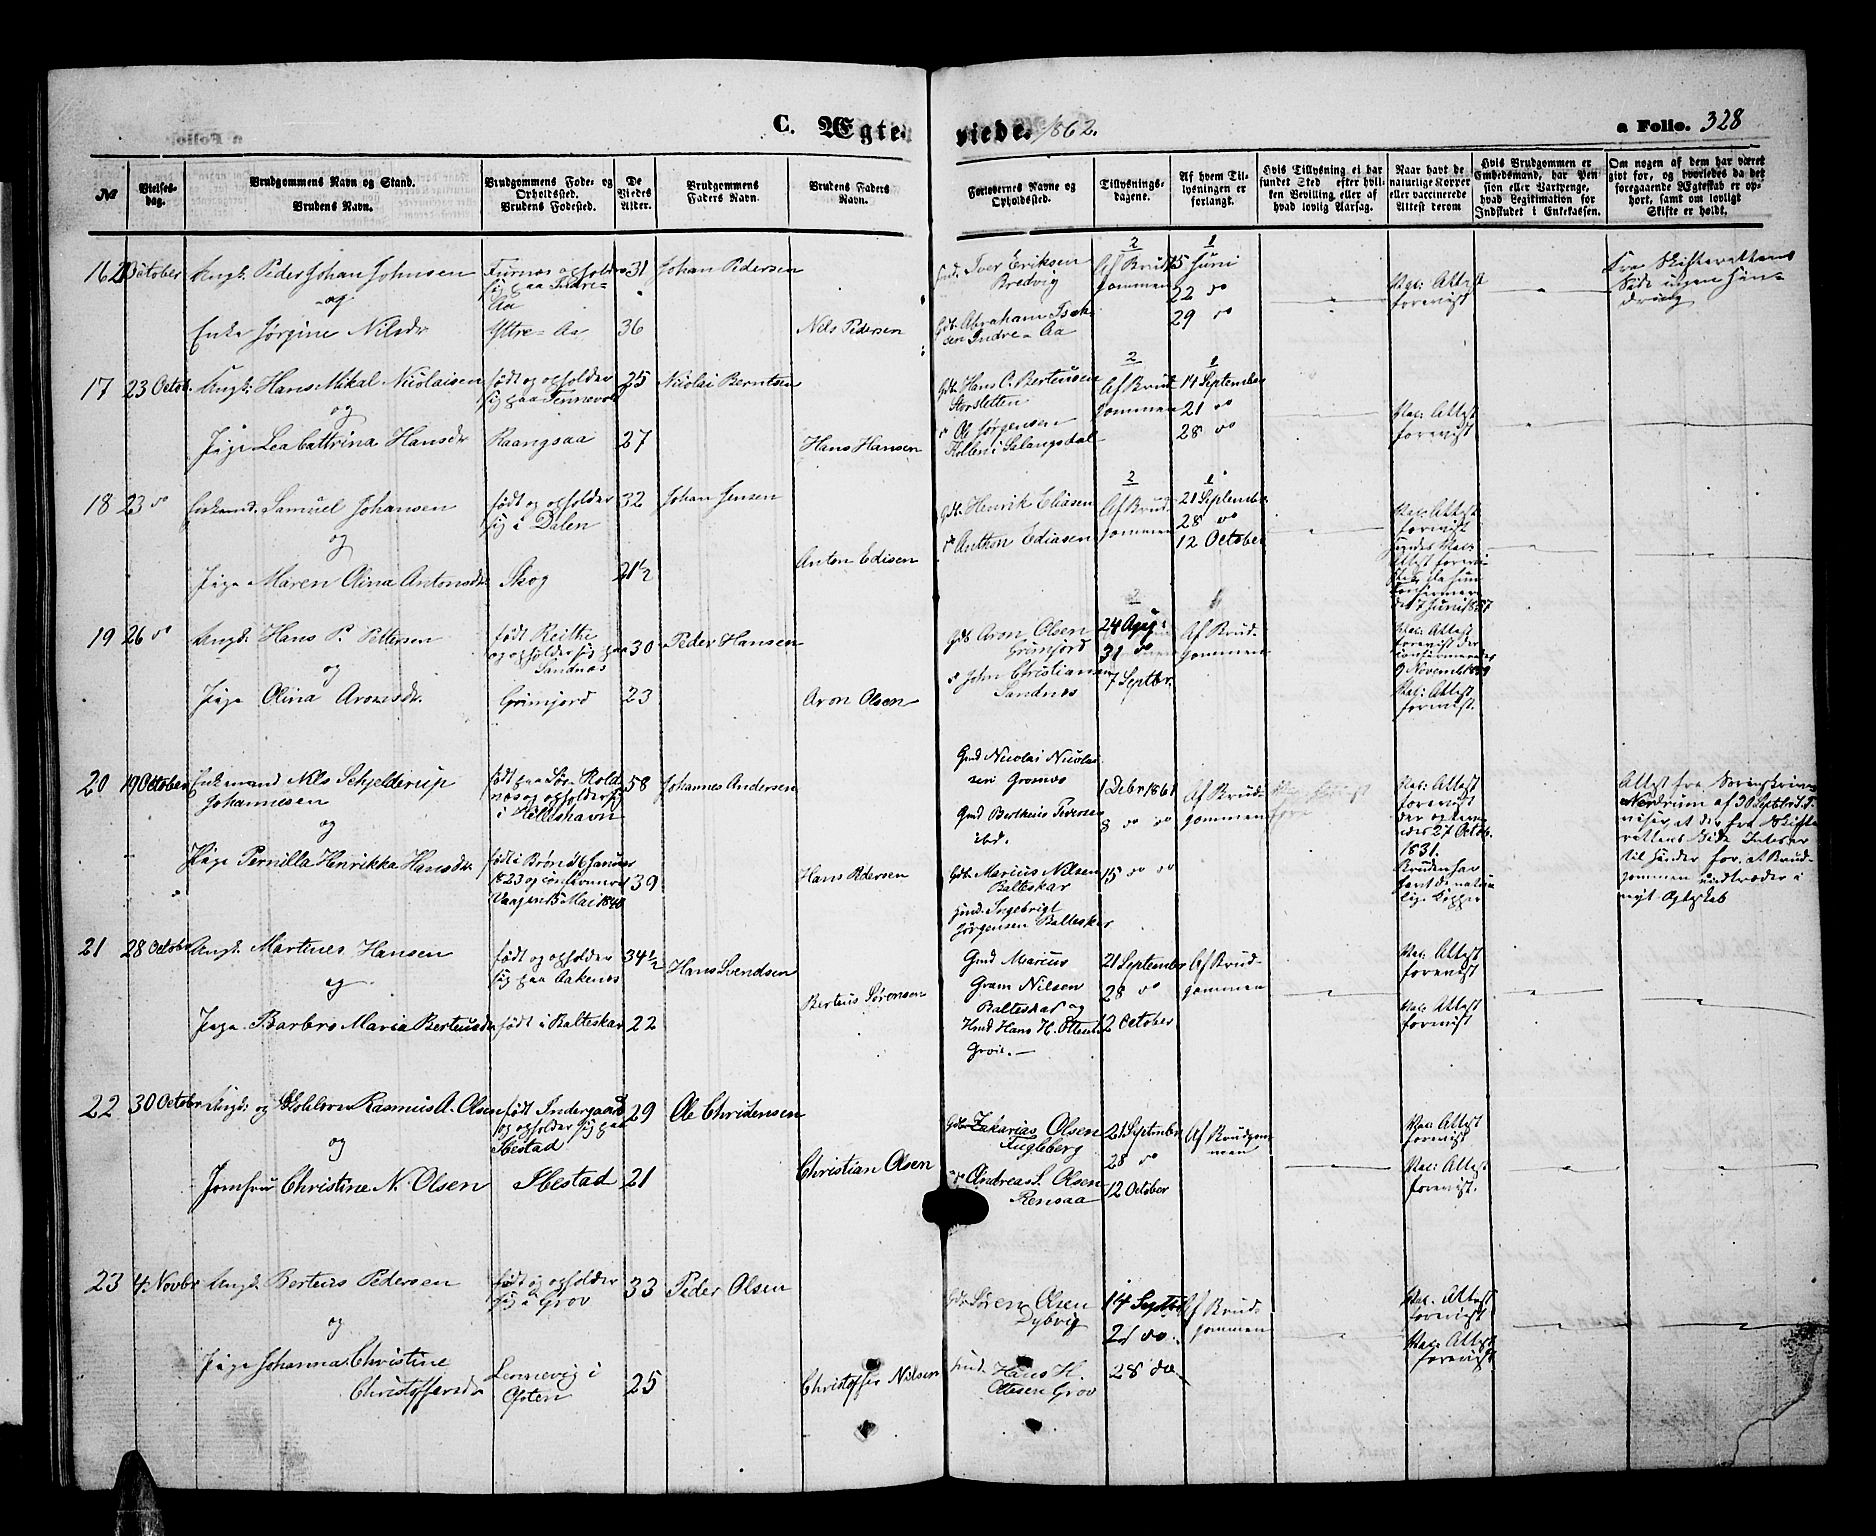 C. Ægte
viede. 1862.
a Folio. 328
№
Vielses-
dag.
Brudgommens Navn og Stand.
Brudens Navn.
Brudgommens Føde- og
Opholdssted.
Brudens Fødested.
De
Viedes
Alder.
Brudgommens
Faders Navn.
Brudens Faders
Navn.
Forlovernes Navne og
Opholdssted.
Tillysnings-
dagene.
Af hvem Til-
lysningen er
forlangt.
Hvis Tillysning ei har
fundet Sted efter hvil-
ken Bevilling eller af
hvad lovlig Aarsag.
Naar havt de
naturlige Kopper
eller vaccinerede
Attest derom
Hvis Brudgommen er
Embedsmand, har Pen
sion eller Vartpenge,
hvad Legitimation for
Indskudet i Enkekassen.
Om nogen af dem har været
gift før, og hvorledes da det
foregaaende Ægteskab er op-
hørt, samt om lovligt
Skifte er holdt.
16 October Ungk. Peder Johan Johnsen
og
Enke Jørgine Nilsdr
Furnes opholder
sig paa Indre-
Aa
Yttre-Aa
31
36
Johan Pedersen
Nils Pedersen
Gmd. Iver Eriksen
Bredvig
Gdb. Abraham Isak-
sen Indre-Aa
2
Af Brud-
gommen
1
15 Juni
22 do
29 do
Vac. Attest
forevist
Fra Skifterettens
Side ingen Hin-
dring
17 23 Octob. Ungk. Hans Mikal Nicolaisen
og
Pige Leabattrina Hansdr
født og opholder
sig paa Tennevol
Raangsaa
25
27
Nicolai Berntsen
Hans Hansen
Gdb. Hans C. Bertensen
Storsletten
do Ole Jørgensen
Kollen i Salangsdal
2
Af Brud
gommen
1
14 September
21 do
28 do
Vac. Attest
forevist
18 23 do Enkemd. Samuel Johansen
og
Pige Maren Olina Antonsdr
født og opholder
sig i Dalen
Skog
32
21½
Johan Jensen
Anton Edisen
Gdb. Henrik Eliasen
do Anthon Ediasen
2
Af Brud
gommen
1
21 September
28 do
12 October
Vac. Attest
forevist
Hendes Vac.
Attest forevi-
den 7 Juni 1857
19 26 do Ungk. Hans P. Pettersen
og
Pige Olina Aronsdr.
født Reithe
og opholder sig paa
Sandnes
Grimjord
30
23
Peder Hansen
Aron Olsen
Gdb. Aron Olsen
Grimjord
do John Christiansen
Sandnes
2
24 Aug:
31 do
7 Septbr.
1
Af Brud-
gommen
Vac. Attest
forevist der
Vac. Attest
forevist.
20 19 October Enkemand Nils Schjelderup
Johannesen
og
Pige Pernilla Henrikka Hansdr.
født paa Sør Rold
nes og opholder sig
i Hilleshavn
født i Brøn d 6 Januar
1823 og confirmeret
Vaagen 15 Mai 1840
58
39
Johannes Andersen
Hans Pedersen
Gmd Nicolai Nicolai
sen Gromvo
Gmd Bertheus Pedersen
ibd.
Gdb. Marius Nilsen
Balteskar
Hmd. Ingebrigt
Jørgensen Balteskar
1 Debr 1861
8 do do
15 do do
Af Brud-
gommen
Vac. Attest
forevist
1831.
Bruden har
havt de natur
lige Kopper
Attest fra Sorenskriver
Nordrum af 30 Septbr
viser at der fra Skifte
rettens Side Intet er
til Hinder for, at Brud-
gommen indtræder i
nyt Ægteskab
21 28 Octobr Ungk. Martines Hansen
og
Pige Barbro Maria Berteusdr
født og opholder
sig paa Aakenes
født i Balteskar
34½
22
Hans Svendsen
Berteus Sørensen
Gmd Marius
Gram Nilsen
Balteskar og
Hmd Hans H. Ottesen
Grov.
21 September
28 do
12 October
Af Brud-
gommen
Vac. Attest
forevist
Vac. Attest
forevist
22 30 Octobr Ungk. og Skolelærer Rasmus A. Olsen
og
Jomfru Christine N. Olsen
født Indergaard
og opholder sig paa
Ibestad
Ibestad
29
21
Ole Christensen
Christian Olsen
Gdb. Zakarias Olsen
Fugleberg
do Andreas L. Olsen
Rensaa
21 September
28 do
12 October
Af Brudgom-
men
Vac. Attest
forevist
Vac. Attest
forevist.
23 4 Novbr Ungk. Berteus Pedersen
og
Pige Johanna Christine
Christoffersdr
født og opholder
sig i Grov
Lennevig i
Ofoten
33
25
Peder Olsen
Christoffer Nilsen
Gdb Søren Olsen
Dybvig
Gmd. Hans H.
Ottesen Grov
14 Septbr
21 do
28 do
Af Brud-
gommen
Vac. Attest
forevist
Vac. Attest
forevist